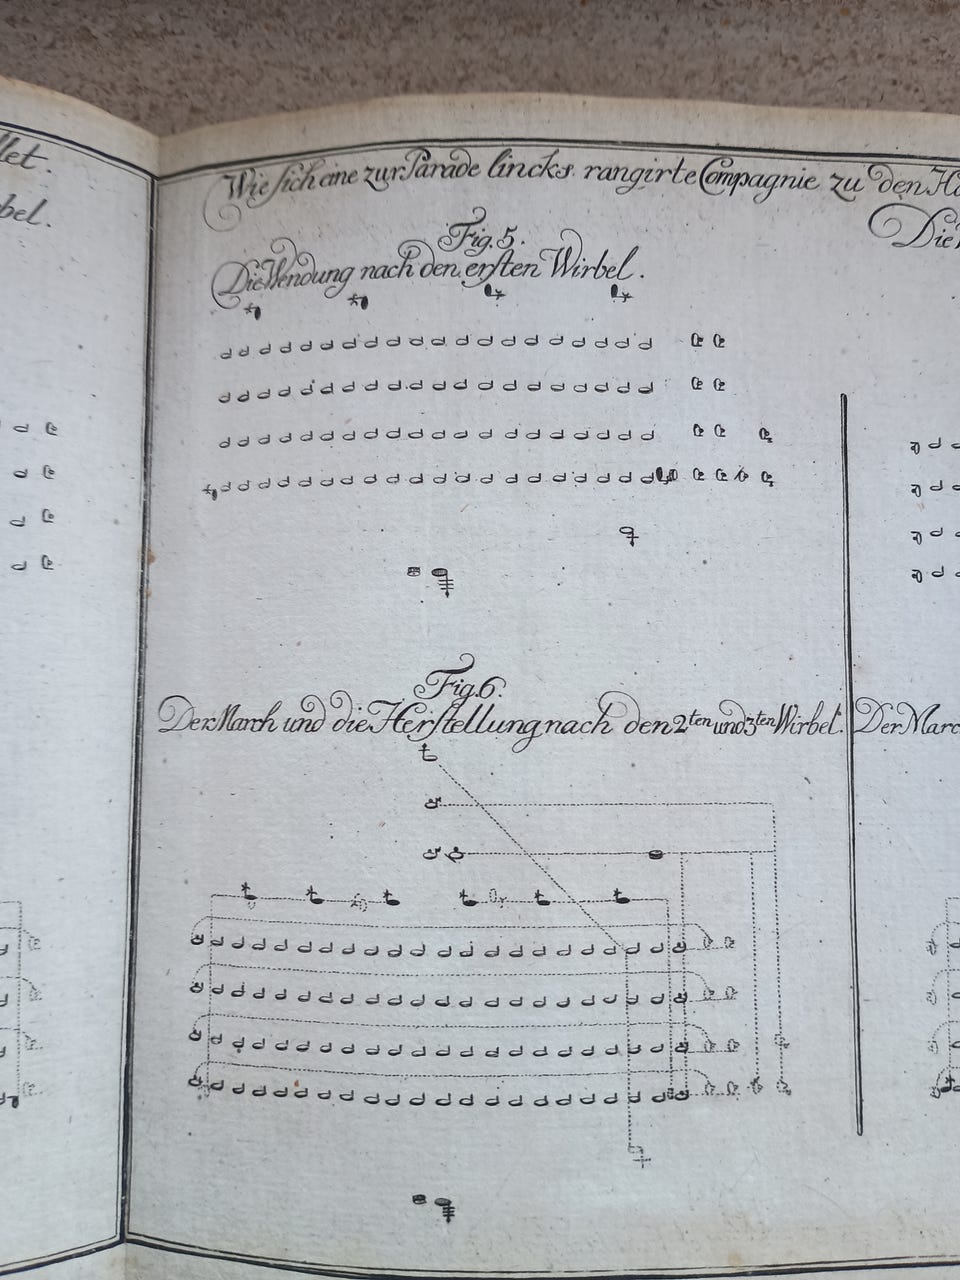 let.
bel.
Wie sich eine zur Parade lincks rangirte Compagnie zu den
Fig. 5.
Die Wendung nach den ersten Wirbel.
Fig. 6.
Der March und die Herstellung nach den 2ten und 3ten Wirbel.
Der Marc